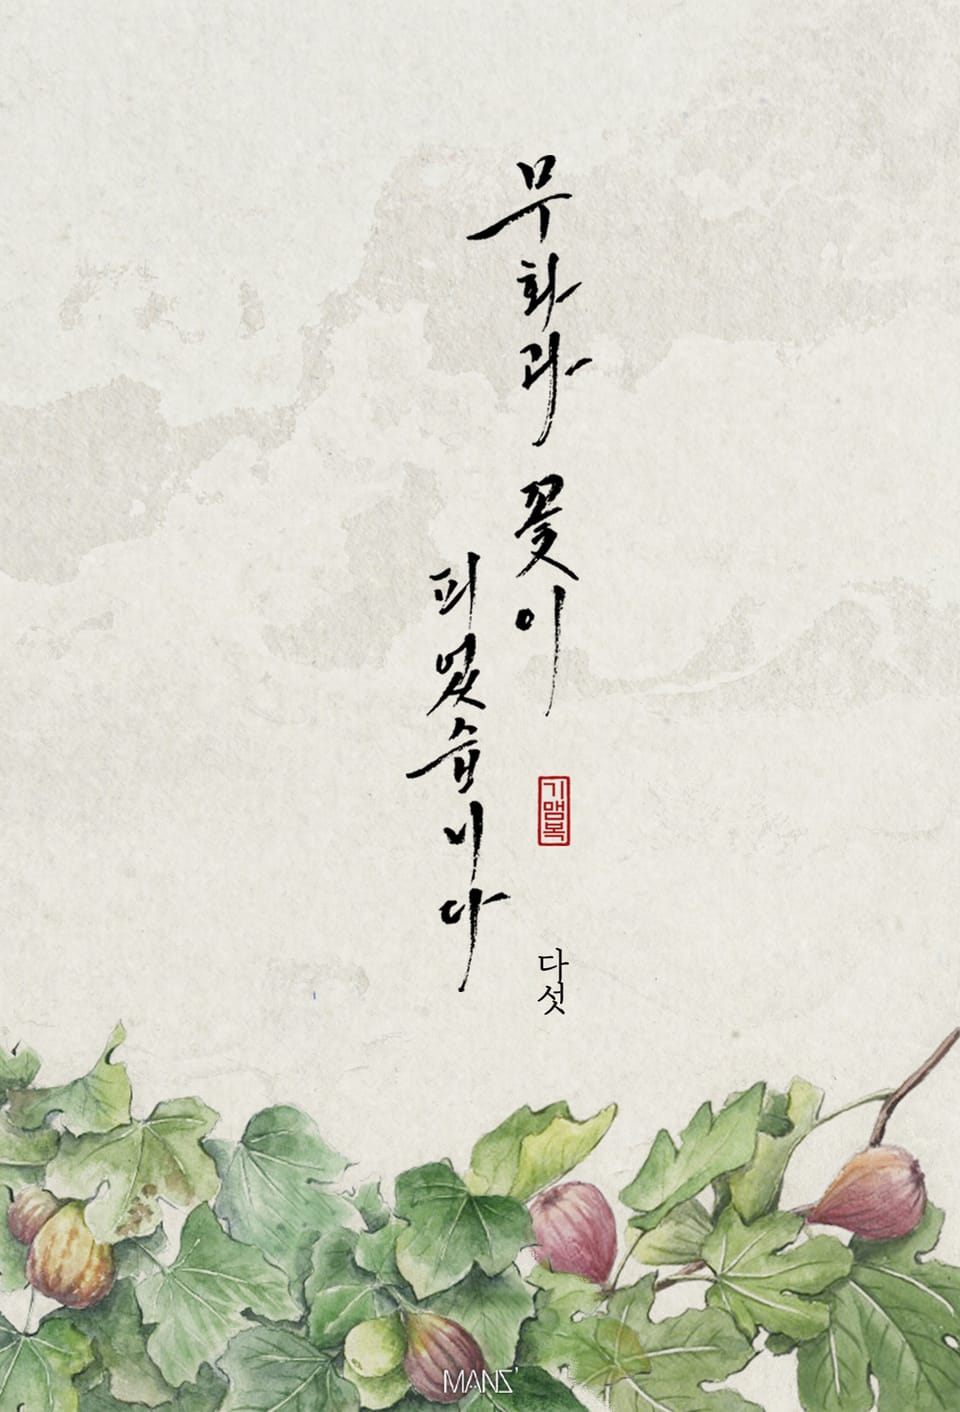 무화과 꽃이
피었습니다
기맴복
다섯
MANS'